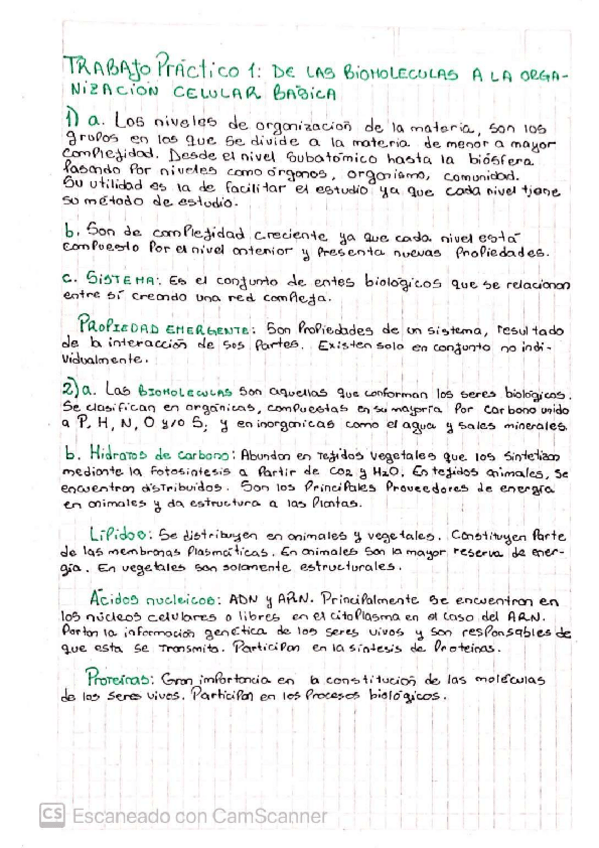 TRABAJO PRÁCTICO 1: DE LAS BIOMOLECULAS A LA ORGA-
NIZACIÓN CELULAR BÁSICA
1) a. Los niveles de organización de la materia, son los
grupos en los que se divide a la materia de menor a mayor
complejidad. Desde el nivel subatómico hasta la biósfera
pasando por niveles como órganos, organismo, comunidad.
Su utilidad es la de facilitar el estudio ya que cada nivel tiene
su método de estudio.
b. Son de complejidad creciente ya que cada nivel está
compuesto por el nivel anterior y presenta nuevas propiedades.
c. SISTEMA: Es el conjunto de entes biológicos que se relacionan
entre sí creando una red compleja.
PROPIEDAD EMERGENTE: Son propiedades de un sistema, resultado
de la interacción de sus partes. Existen solo en conjunto no indi-
vidualmente.
2) a. Las BIOMOLECULAS son aquellas que conforman los seres biológicos.
Se clasifican en orgánicas, compuestas en su mayoría por carbono unido
a P, H, N, O y/o S; y en inorganicas como el agua y sales minerales.
b. Hidratos de carbono: Abundan en tejidos vegetales que los sintetizan
mediante la fotosíntesis a partir de CO2 y H2O. En tejidos animales, se
encuentran distribuidos. Son los principales proveedores de energía
en animales y da estructura a las plantas.
Lípidos: Se distribuyen en animales y vegetales. Constituyen parte
de las membranas plasmáticas. En animales son la mayor reserva de ener-
gía. En vegetales son solamente estructurales.
Ácidos nucleicos: ADN y ARN. Principalmente se encuentran en
los núcleos celulares o libres en el citoplasma en el caso del ARN.
Portan la información genética de los seres vivos y son responsables de
que esta se transmita. Participan en la síntesis de proteínas.
Proteínas: Gran importancia en la constitución de las moléculas
de los seres vivos. Participan en los procesos biológicos.
CS Escaneado con CamScanner